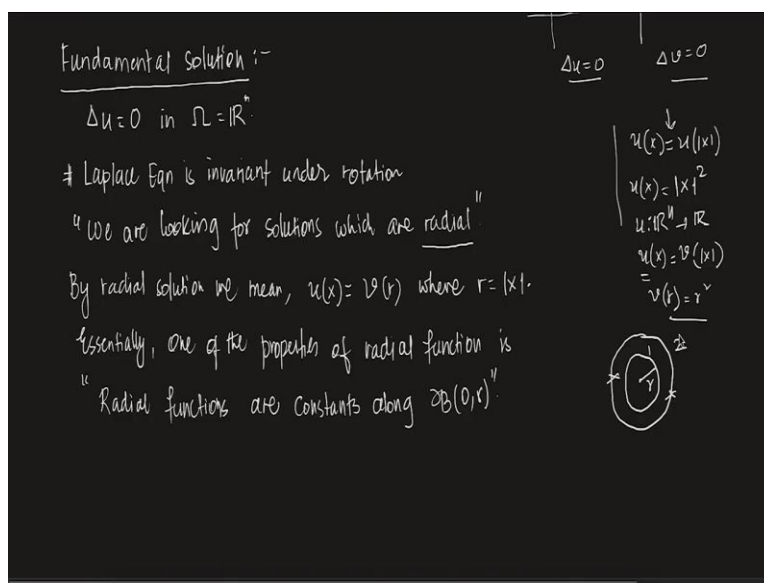 Fundamental solution :-
Δu=0 in Ω=ℝⁿ.
# Laplace Eqn is invariant under rotation
"We are looking for solutions which are radial"
By radial solution we mean, u(x)= v(r) where r=|x|.
Essentially, One of the properties of radial function is
"Radial functions are constants along ∂B(0,r)"
Δu=0
Δv=0
↓
u(x)=u(|x|)
u(x)=|x|²
u:ℝⁿ→ℝ
u(x)=v(|x|)
=
v(r)=r²
1
r